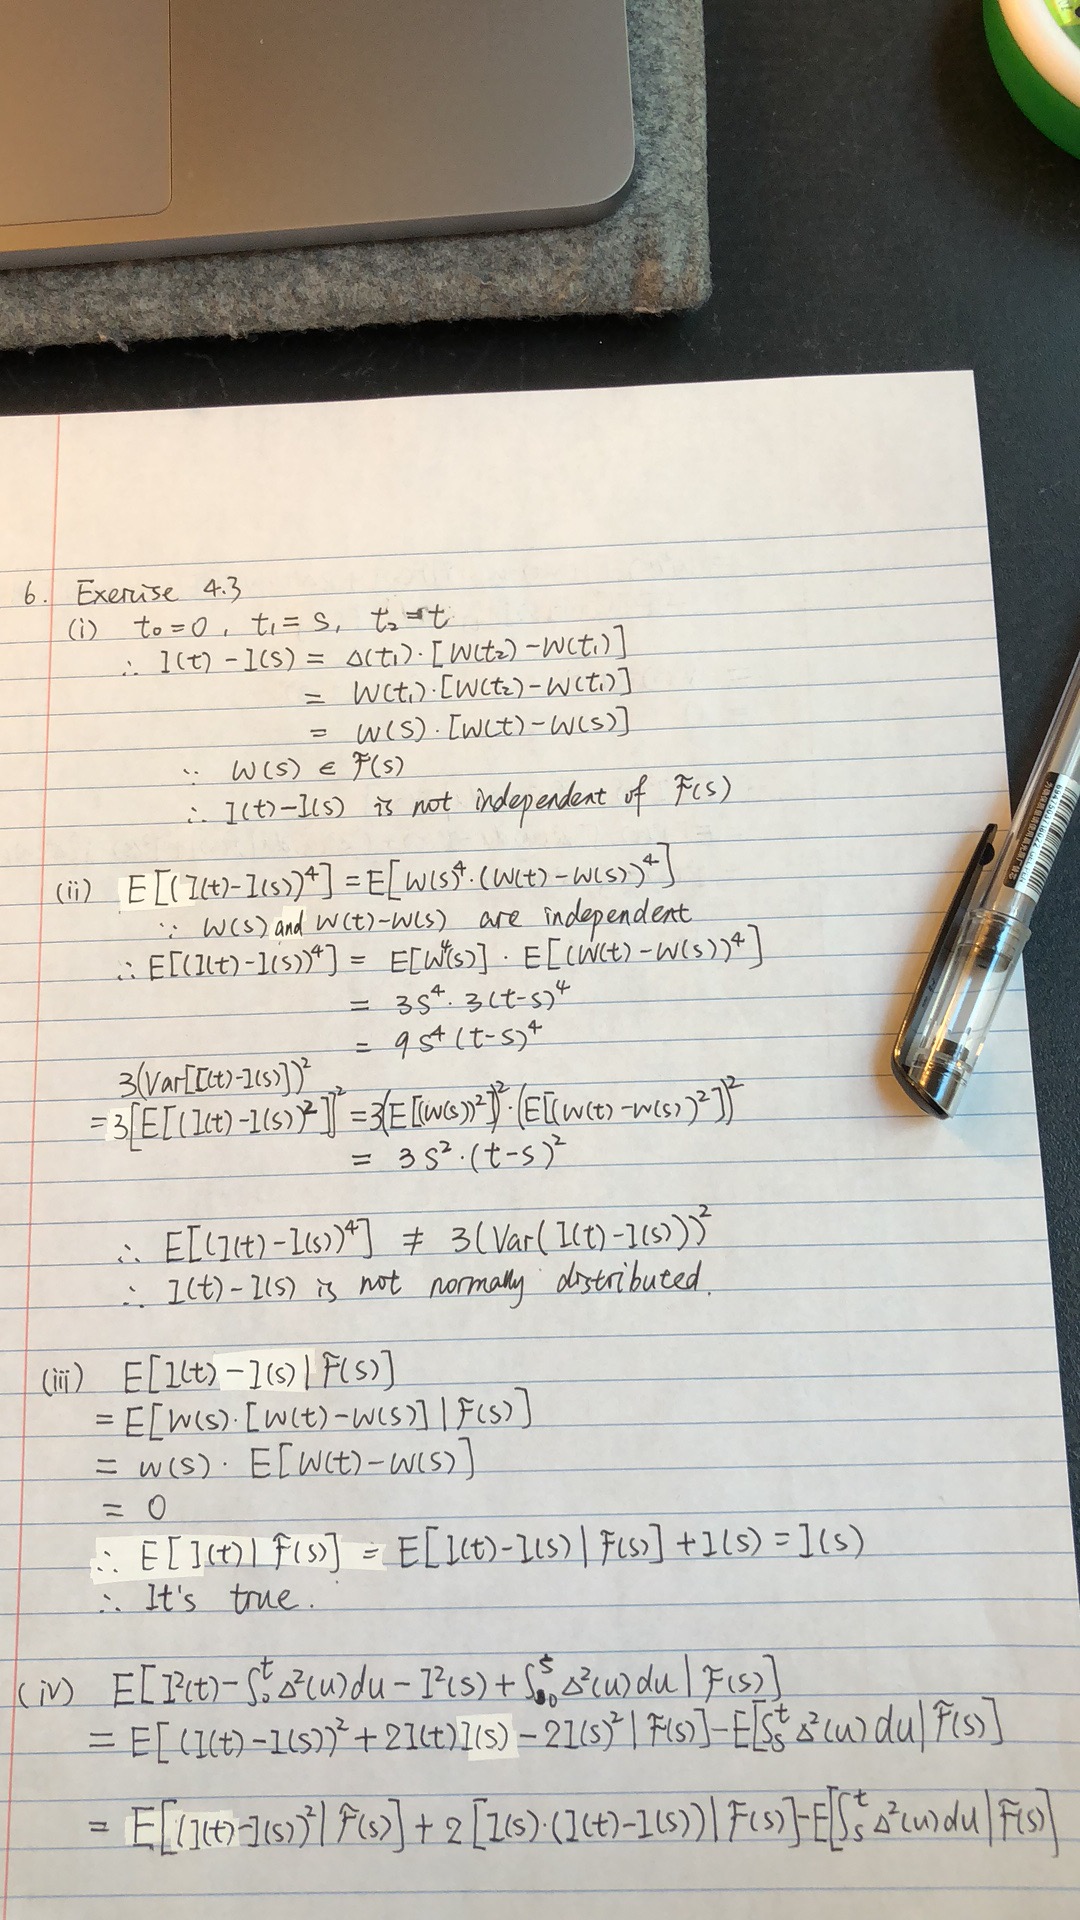 6. Exercise 4.3
(i) t₀=0, t₁=s, t₂=t
∴ I(t)-I(s) = Δ(t₁)·[W(t₂)-W(t₁)]
= W(t₁)·[W(t₂)-W(t₁)]
= W(s)·[W(t)-W(s)]
∵ W(s) ∈ F(s)
∴ I(t)-I(s) is not independent of F(s)
(ii) E[(I(t)-I(s))⁴] = E[W(s)⁴·(W(t)-W(s))⁴]
∵ W(s) and W(t)-W(s) are independent
∴ E[(I(t)-I(s))⁴] = E[W⁴(s)]·E[(W(t)-W(s))⁴]
= 3s⁴·3(t-s)⁴
= 9s⁴(t-s)⁴
3(Var[I(t)-I(s)])²
= 3[E[(I(t)-I(s))²]]² = 3(E[(W(s))²])²·(E[(W(t)-W(s))²])²
= 3s²·(t-s)²
∴ E[(I(t)-I(s))⁴] ≠ 3(Var(I(t)-I(s)))²
∴ I(t)-I(s) is not normally distributed.
(iii) E[I(t)-I(s)|F(s)]
= E[W(s)·[W(t)-W(s)]|F(s)]
= W(s)·E[W(t)-W(s)]
= 0
∴ E[I(t)|F(s)] = E[I(t)-I(s)|F(s)]+I(s)=I(s)
∴ It's true.
(iv) E[I²(t)-∫₀ᵗΔ²(u)du-I²(s)+∫₀ˢΔ²(u)du|F(s)]
= E[(I(t)-I(s))²+2I(t)I(s)-2I(s)²|F(s)]-E[∫ₛᵗΔ²(u)du|F(s)]
= E[(I(t)-I(s))²|F(s)]+2[I(s)·(I(t)-I(s))|F(s)]-E[∫ₛᵗΔ²(u)du|F(s)]